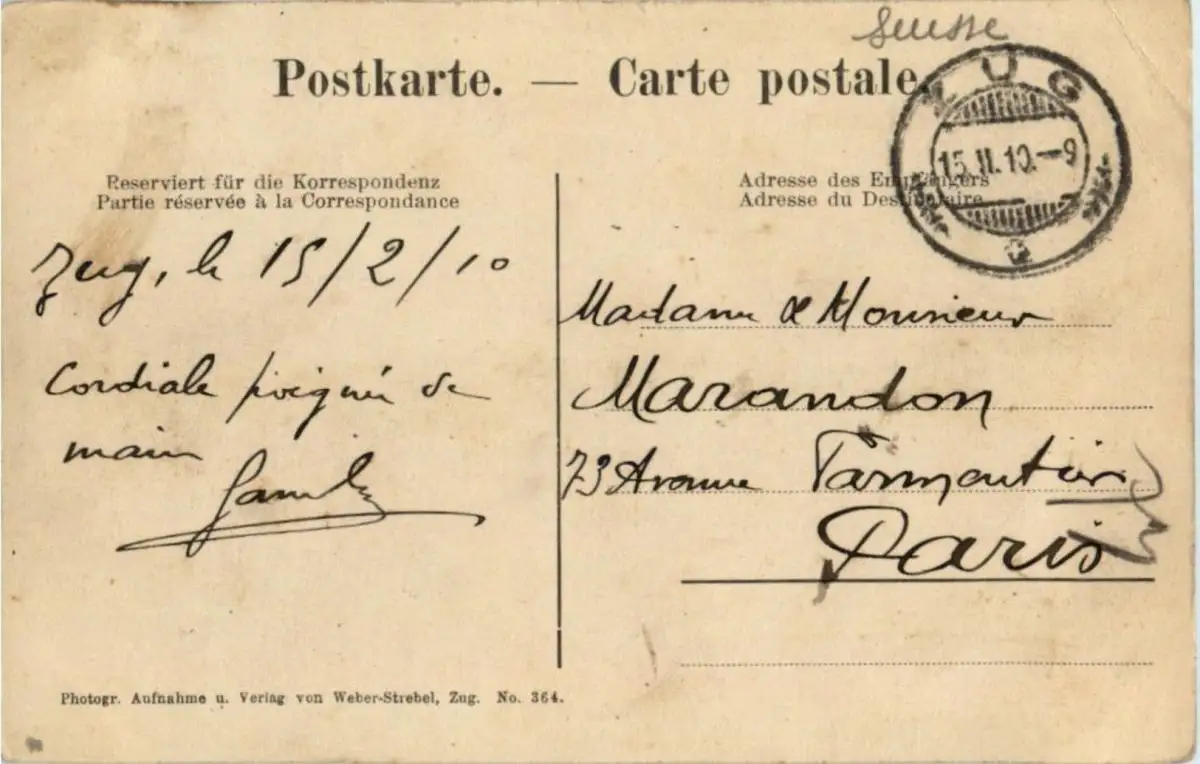 Suisse
Postkarte. — Carte postale.
ZUG
15.II.10.—9
Reserviert für die Korrespondenz
Partie réservée à la Correspondance
Adresse des Empfängers
Adresse du Destinataire
Zug, le 15/2/10
Cordiale poignée de
main
Madame & Monsieur
Marandon
73 Avenue Parmentier
Paris
Photogr. Aufnahme u. Verlag von Weber-Strebel, Zug. No. 364.